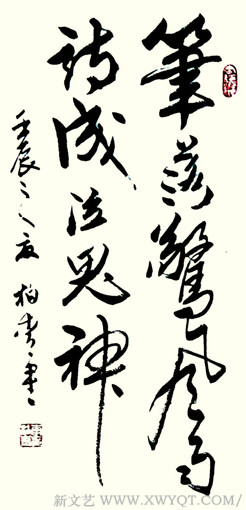 筆落驚風雨
詩成泣鬼神
壬辰之夏 柏
新文艺 WWW.XWYQT.COM/